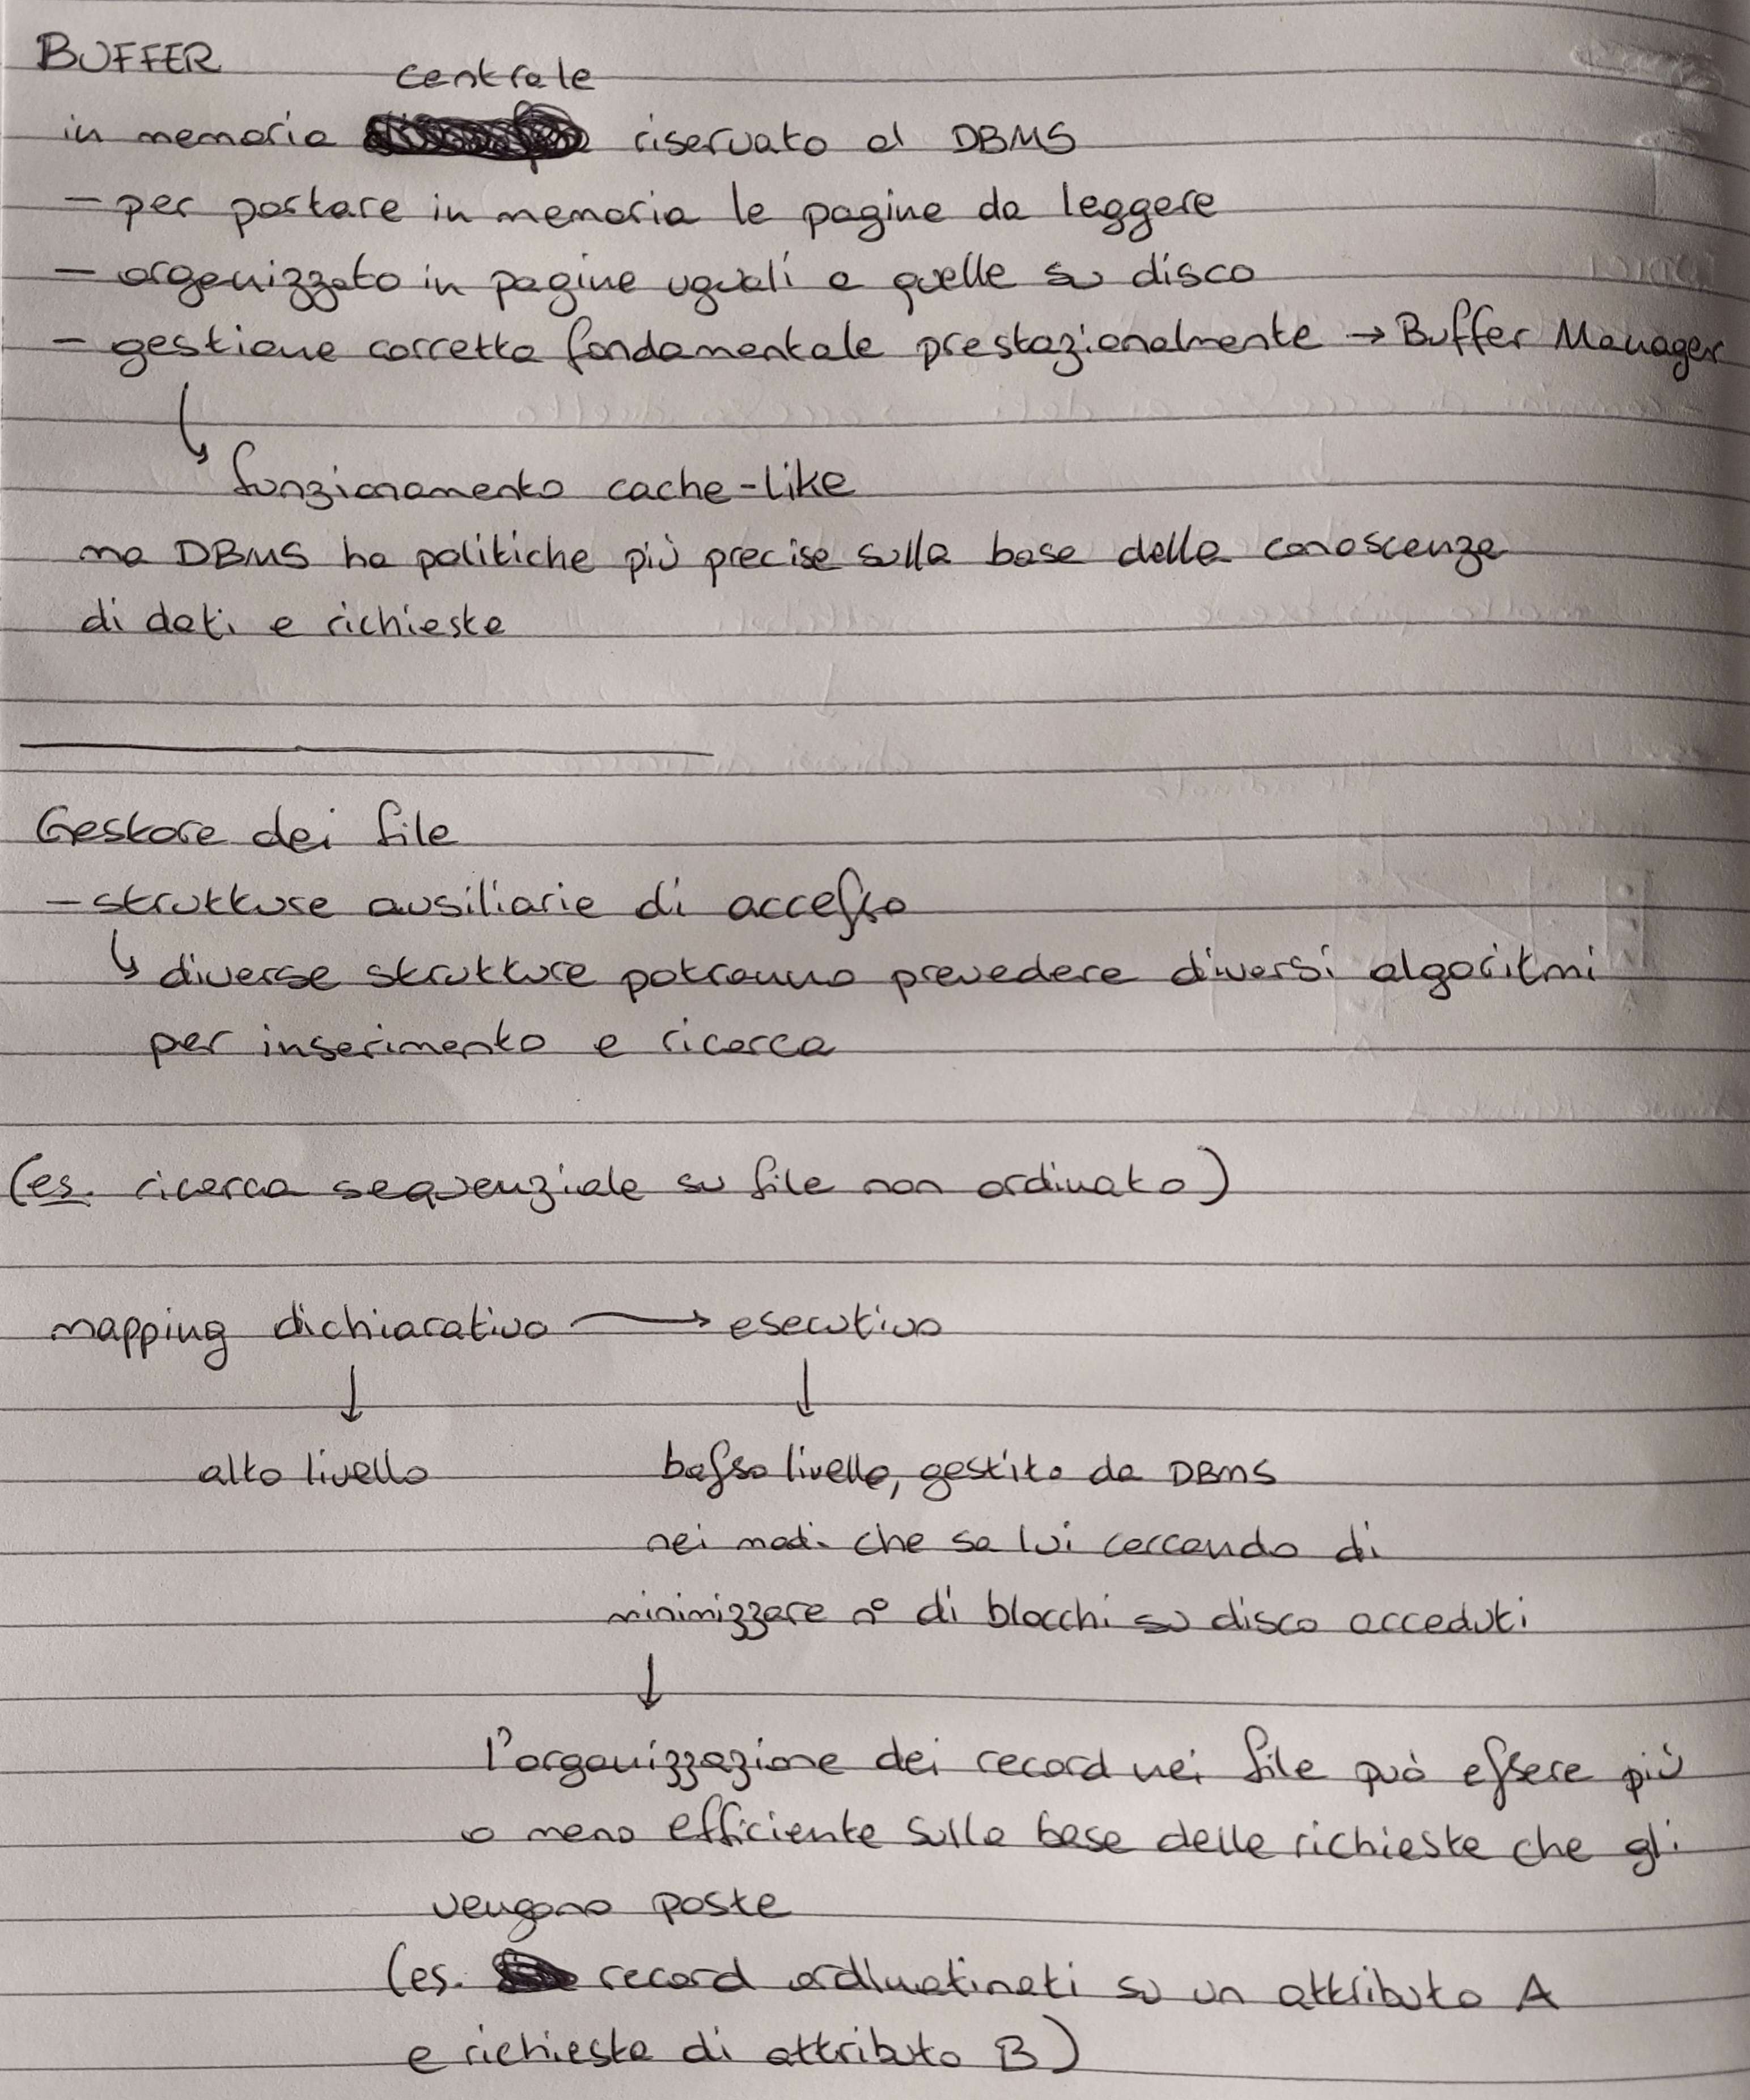 BUFFER
centrale
in memoria riservato al DBMS
- per portare in memoria le pagine da leggere
- organizzato in pagine uguali a quelle su disco
- gestione corretta fondamentale prestazionalmente → Buffer Manager
↳ funzionamento cache-like
ma DBMS ha politiche più precise sulla base della conoscenza
di dati e richieste
Gestore dei file
- strutture ausiliarie di accesso
↳ diverse strutture potranno prevedere diversi algoritmi
per inserimento e ricerca
(es. ricerca sequenziale su file non ordinato)
mapping dichiarativo → esecutivo
↓ ↓
alto livello basso livello, gestito da DBMS
nei modi che sa lui cercando di
minimizzare n° di blocchi su disco acceduti
↓
l'organizzazione dei record nei file può essere più
o meno efficiente sulla base delle richieste che gli
vengono poste
(es. record su un attributo A
e richiesta di attributo B)